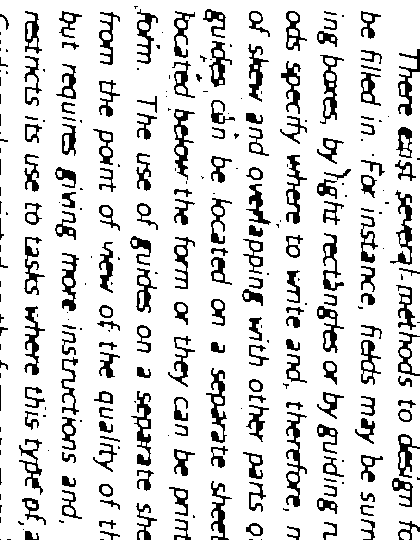 There exist several methods to design fo
be filled in. For instance, fields may be surr
ing boxes, by light rectangles or by guiding ru
ods specify where to write and, therefore, m
of skew and overlapping with other parts o
guides can be located on a separate sheet
located below the form or they can be print
form. The use of guides on a separate she
from the point of view of the quality of th
but requires giving more instructions and,
restricts its use to tasks where this type of a